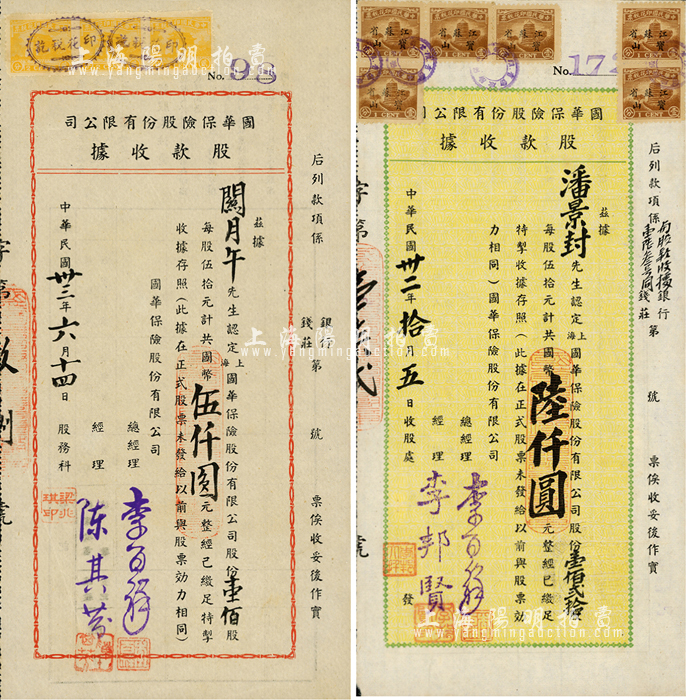 No. 98
國華保險股份有限公司
股款收據
茲據
闕月午先生認定上海國華保險股份有限公司股份壹佰股
每股伍拾元計共國幣伍仟圓元整經已繳足特掣
收據存照(此據在正式股票未發給以前與股票効力相同)
國華保險股份有限公司
總經理
經理 陳其芬
中華民國卅三年六月十四日 股務科
后列款項係
銀行
錢莊
第 號 票俟收妥後作實
No. 172
國華保險股份有限公司
股款收據
茲據
潘景封先生認定上海國華保險股份有限公司股份壹佰貳拾
每股伍拾元計共國幣陸仟圓元整經已繳足
特掣收據存照(此據在正式股票未發給以前與股票効
力相同)國華保險股份有限公司
總經理
經理 李邦賢
中華民國卅二年拾月五日收股處 發
后列款項係
銀行
錢莊
第 號 票俟收妥後作實
1 CENT
上海陽明拍賣
www.yangmingauction.com
上海陽明拍賣
www.yangmingauction.com
上海陽明拍賣
www.yangmingauction.com